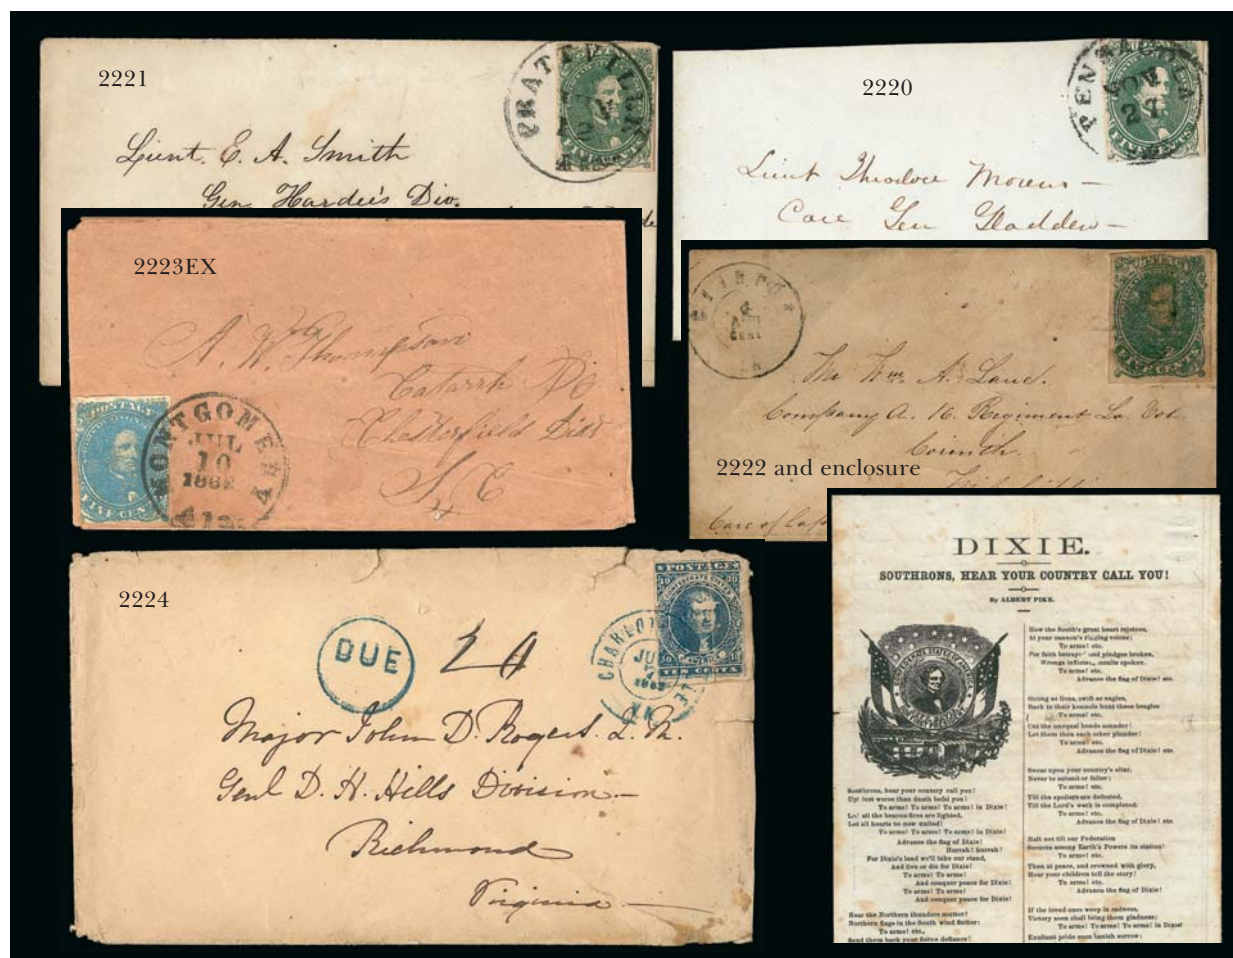 2221
PRATTVILLE
Lieut. E. A. Smith
Gen Hardee's Div.
2220
PENSACOLA
NOV
27
FIVE CENTS
Lieut Theodore Moreno —
Care Gen Gladden —
2223EX
A. W. Thompson
Catarrh Po
Chesterfield Dist
S, C
POSTAGE
FIVE CENTS
MONTGOMERY
JUL
10
1862
ALA.
CLINTON
LA
Mr Wm. A. Lane.
Company A. 16. Regiment La. Vol
Corinth.
2222 and enclosure
Care of Cap
2224
DUE
POSTAGE
TEN CENTS
CHARLOTTE
1862
Major John D. Rogers. Q. M.
Genl D. H. Hills Division —
Richmond
Virginia —
DIXIE.
SOUTHRONS, HEAR YOUR COUNTRY CALL YOU!
By ALBERT PIKE.
CONFEDERATE STATES OF AMERICA
Southrons, hear your country call you!
Up! lest worse than death befal you!
To arms! To arms! To arms! in Dixie!
Lo! all the beacon-fires are lighted,
Let all hearts be now united!
To arms! To arms! To arms! in Dixie!
Advance the flag of Dixie!
Hurrah! hurrah!
For Dixie's land we'll take our stand,
And live or die for Dixie!
To arms! To arms!
And conquer peace for Dixie!
To arms! To arms!
And conquer peace for Dixie!
Hear the Northern thunders mutter!
Northern flags in the South wind flutter:
To arms! etc.,
Send them back your fierce defiance!
How the South's great heart rejoices,
At your cannon's ringing voices;
To arms! etc.
For faith betrayed and pledges broken,
Wrongs inflicted, insults spoken.
To arms! etc.
Advance the flag of Dixie! etc.
Strong as lions, swift as eagles,
Back to their kennels hunt these beagles
To arms! etc.
Cut the unequal bonds asunder!
Let them then each other plunder!
To arms! etc.
Advance the flag of Dixie! etc.
Swear upon your country's altar,
Never to submit or falter;
To arms! etc.
Till the spoilers are defeated,
Till the Lord's work is completed.
To arms! etc.
Advance the flag of Dixie! etc.
Halt not till our Federation
Secures among Earth's Powers its station!
To arms! etc.
Then at peace, and crowned with glory,
Hear your children tell the story!
To arms! etc.
Advance the flag of Dixie! etc.
If the loved ones weep in sadness,
Victory soon shall bring them gladness;
To arms! To arms! To arms! in Dixie!
Exultant pride soon banish sorrow;